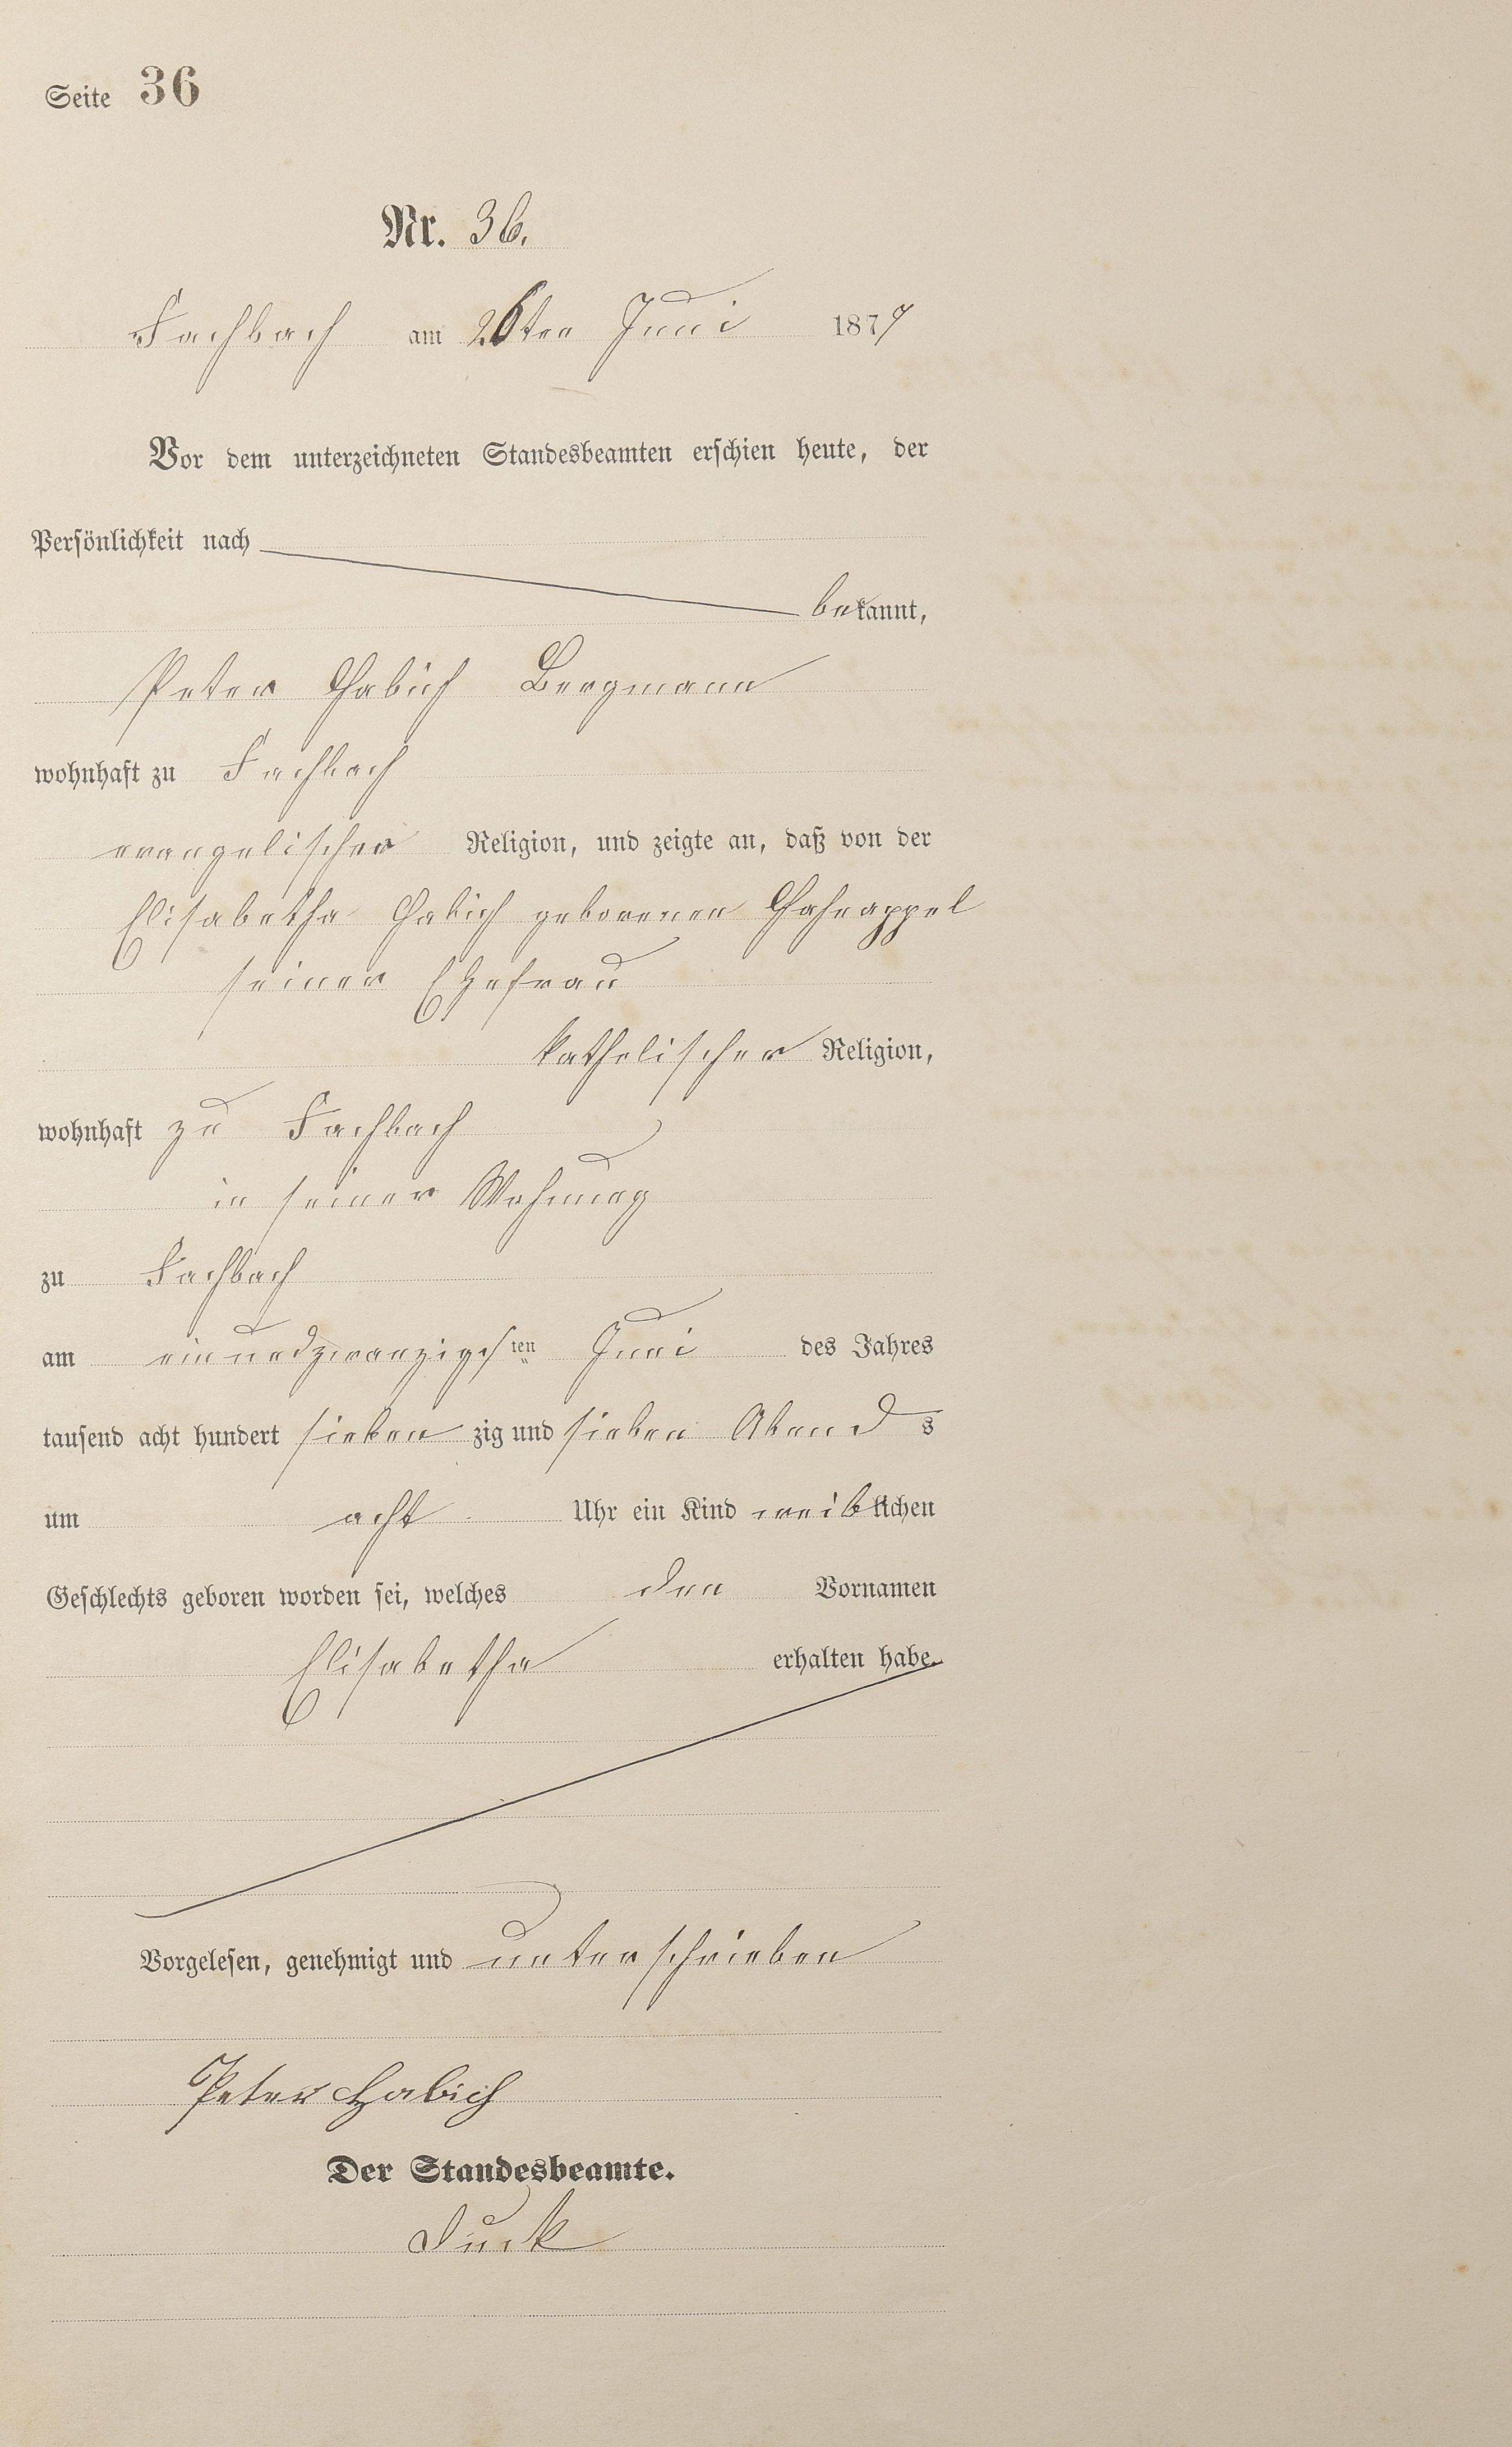 Seite 36
Nr. 36.
Fachbach am 26ten Juni 1877
Vor dem unterzeichneten Standesbeamten erschien heute, der
Persönlichkeit nach
bekannt,
Peter Habich Bergmann
wohnhaft zu Fachbach
evangelischer Religion, und zeigte an, daß von der
Elisabetha Habich geborenen Hasenappel
seiner Ehefrau
katholischer Religion,
wohnhaft zu Fachbach
in seiner Wohnung
zu Fachbach
am einundzwanzigsten Juni des Jahres
tausend acht hundert sieben zig und sieben Abends
um acht Uhr ein Kind weiblichen
Geschlechts geboren worden sei, welches den Vornamen
Elisabetha erhalten habe.
Vorgelesen, genehmigt und unterschrieben
Peter Habich
Der Standesbeamte.
Duck